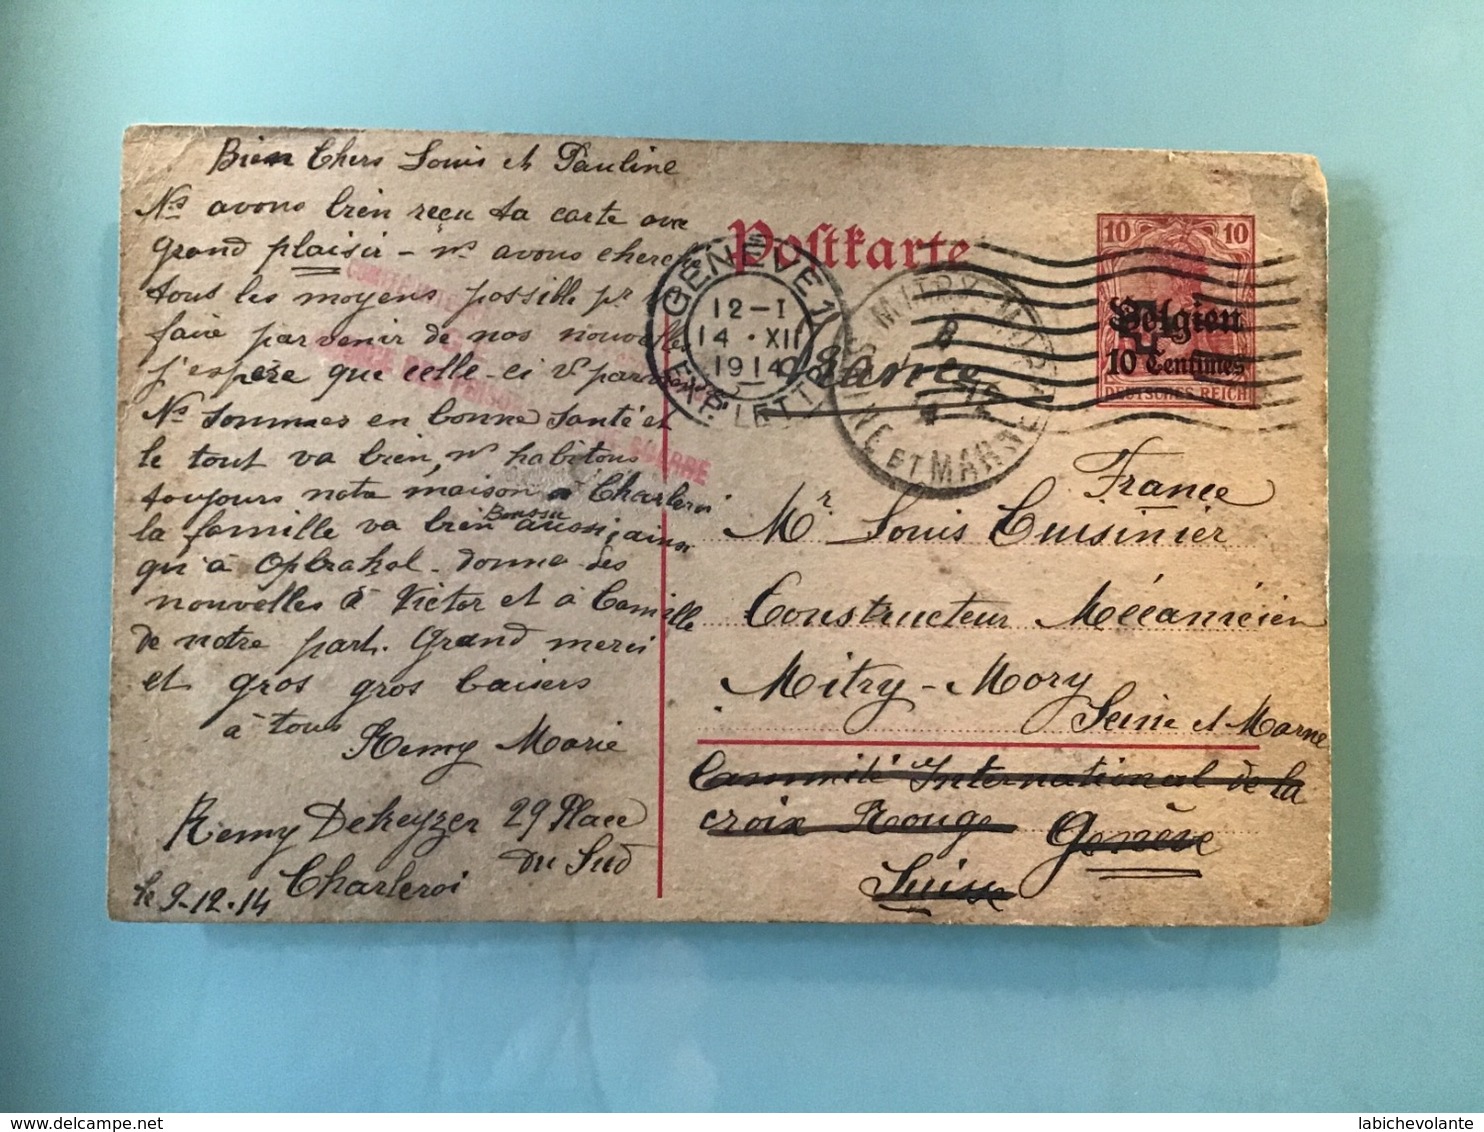 Bien Chers Louis et Pauline
Ns avons bien reçu ta carte avec
grand plaisir - ns avons cherché
tous les moyens possible pr
faire parvenir de nos nouvelles
j'espère que celle-ci v parviendra
Ns sommes en bonne santé et
le tout va bien, ns habitons
toujours notre maison à Charleroi
la famille va bien aussi, ainsi
Boussu
qu'à Opbrakel - donne des
nouvelles à Victor et à Camille
de notre part. Grand merci
et gros gros baisers
à tous
Remy Marie
Remy Dekeyzer 29 Place
du Sud
Charleroi
le 9-12-14
Postkarte
GENÈVE 1
12-I
14·XII
1914
EXP. LETT
MITRY-MORY
8
SEINE ET MARNE
France
10 10
Belgien
10 Centimes
DEUTSCHES REICH
GUERRE
France
Mr Louis Cuisinier
Constructeur Mécanicien
Mitry-Mory
Seine et Marne
Commité International de la
croix Rouge Genève
Suisse
delcampe.net
labichevolante